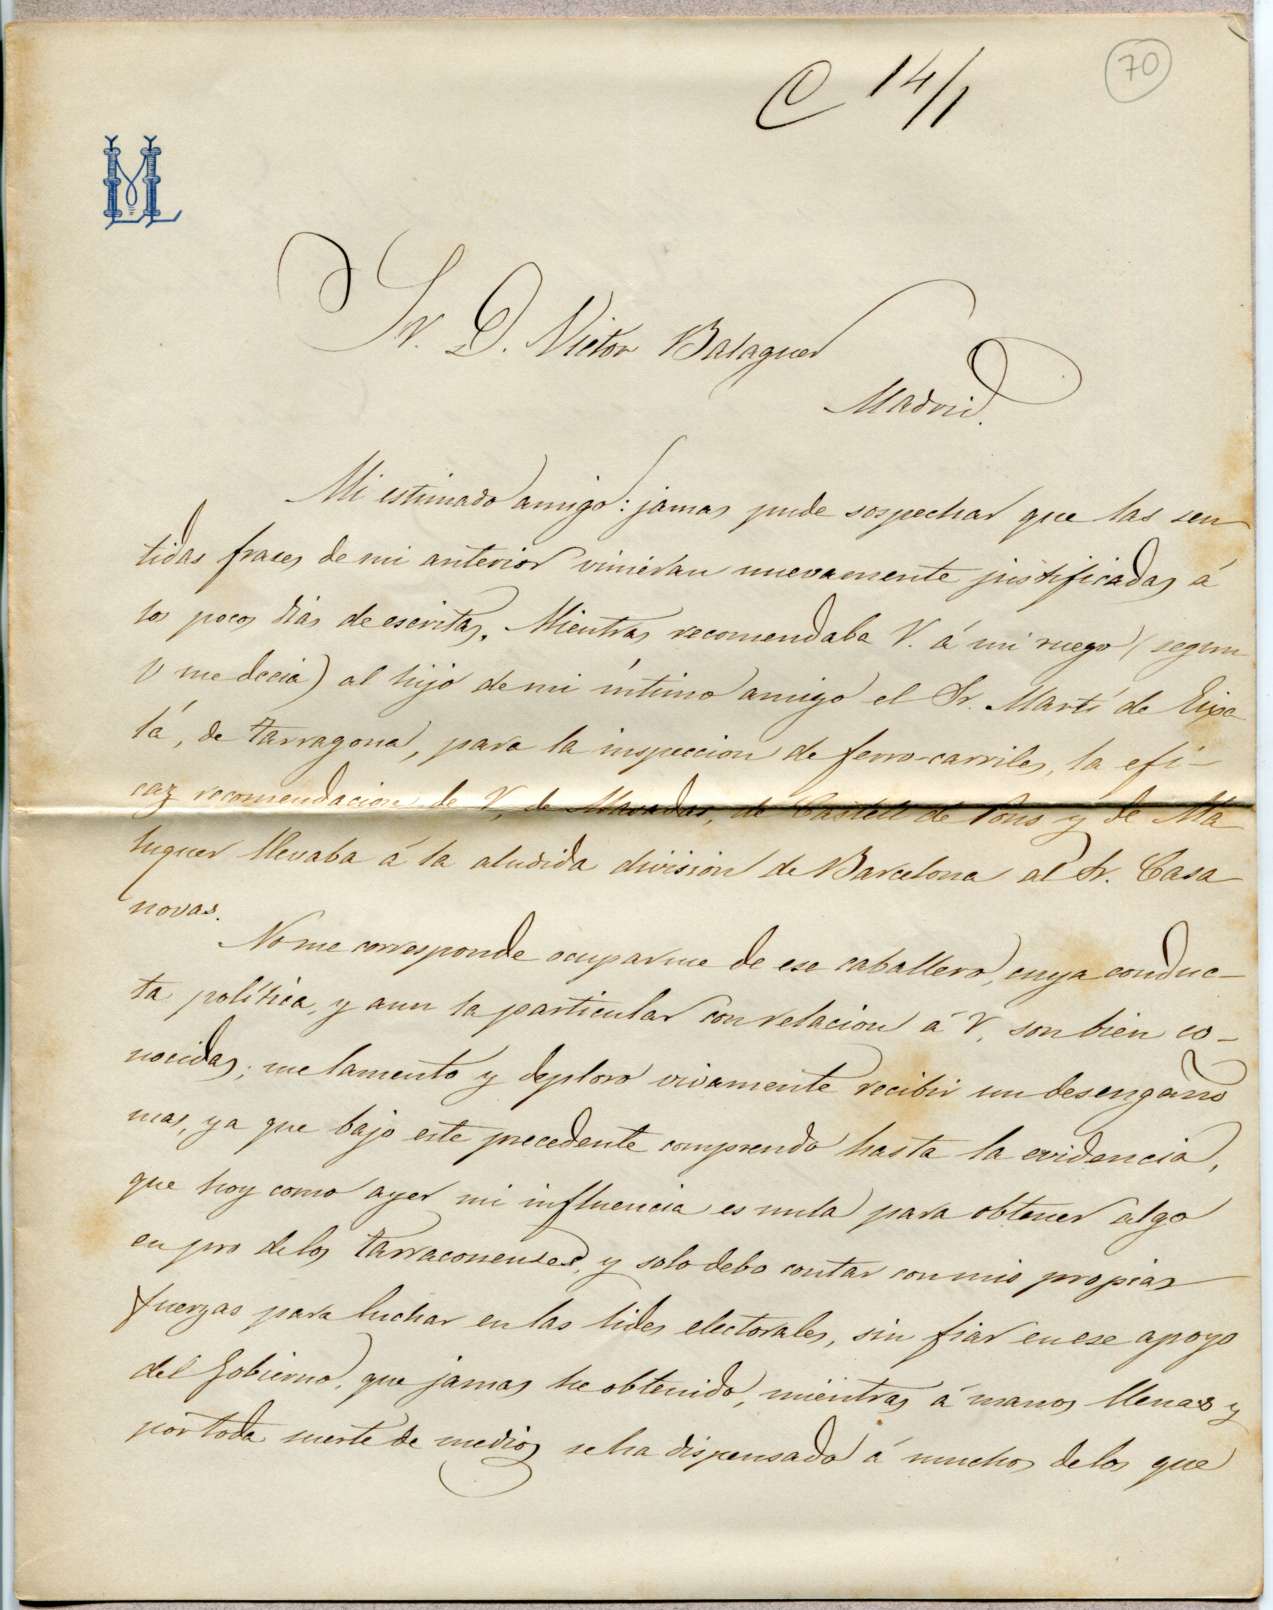 70
C 14/1
ML
Sr. D. Victor Balaguer
Madrid.
Mi estimado amigo: jamas pude sospechar que las sen-
tidas frases de mi anterior vinieran nuevamente justificadas á
los pocos dias de escritas. Mientras recomendaba V. á mi ruego (segun
V me decia) al hijo de mi íntimo amigo el Sr. Martí de Eixa-
lá, de Tarragona, para la inspeccion de ferro-carriles, la efi-
caz recomendacion de V, de Masadas, de Castell de Pons y de Ma
luquer llevaba á la aludida division de Barcelona al Sr. Casa
novas.
No me corresponde ocuparme de ese caballero, cuya conduc-
ta política, y aun la particular con relacion á V, son bien co-
nocidas; me lamento y deploro vivamente recibir un desengaño
mas, ya que bajo este precedente comprendo hasta la evidencia,
que hoy como ayer mi influencia es nula para obtener algo
en pro de los tarraconenses, y solo debo contar con mis propias
fuerzas para luchar en las lides electorales, sin fiar en ese apoyo
del Gobierno, que jamas he obtenido, mientras á manos llenas y
por toda suerte de medios se ha dispensado á muchos de los que